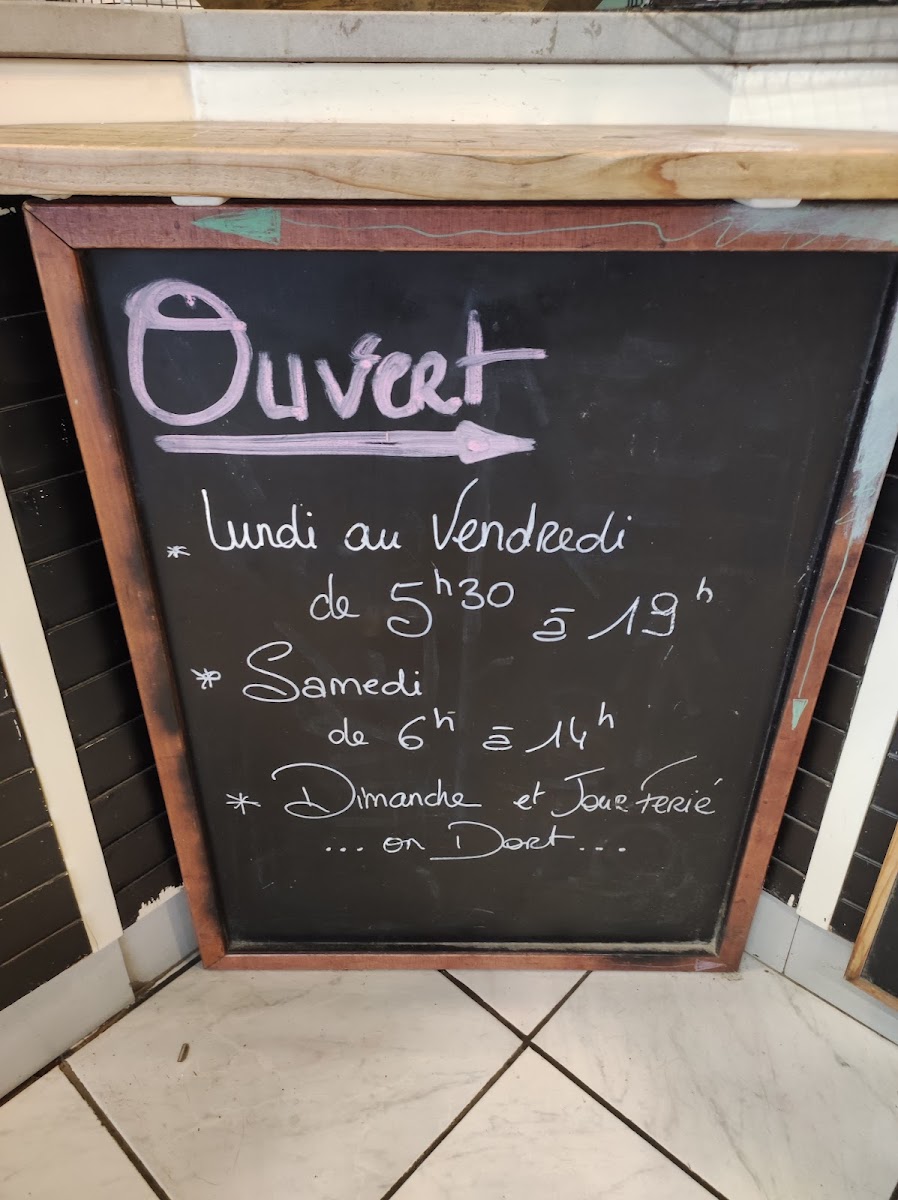 Ouvert
* Lundi au Vendredi
de 5h30 à 19h
* Samedi
de 6h à 14h
* Dimanche et Jour Ferié
... on Dort ...